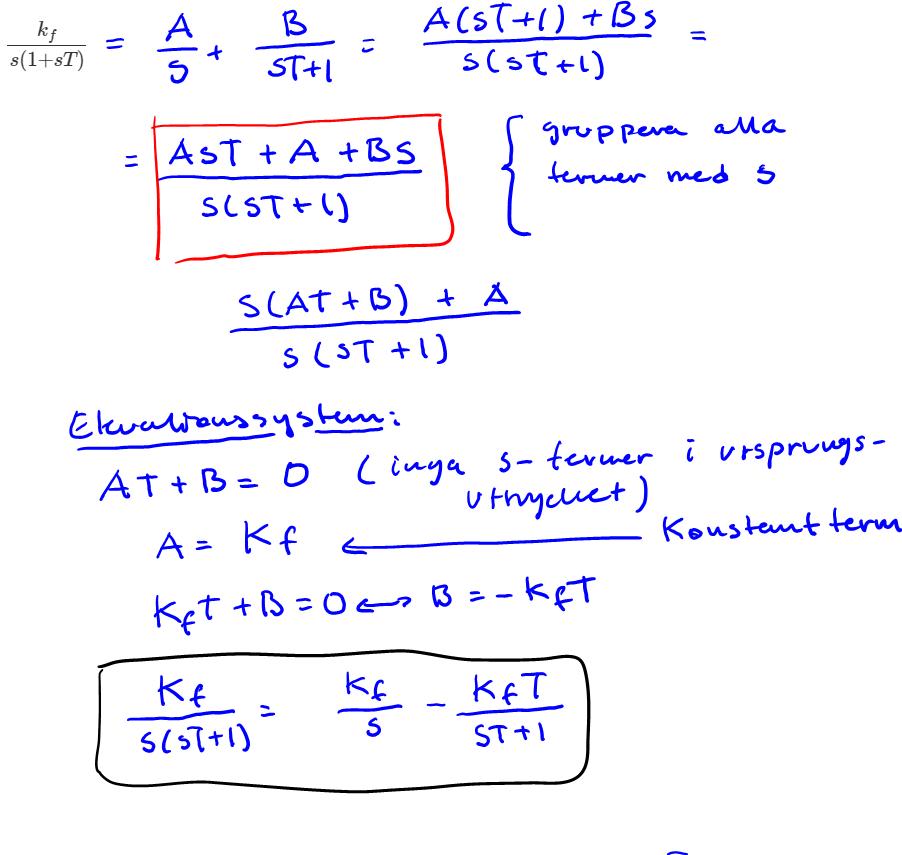 k_f / s(1+sT) = A/S + B/(ST+1) = (A(ST+1) + BS) / (S(ST+1)) =
= (AST + A + BS) / (S(ST+1)) { gruppera alla
termer med s
(S(AT+B) + A) / (S(ST+1))
Ekvationssystem:
AT + B = 0 (inga s-termer i ursprungs-
uttrycket)
A = Kf ← Konstantterm
KfT + B = 0 ↔ B = -KfT
Kf / (S(ST+1)) = Kf/S - KfT/(ST+1)